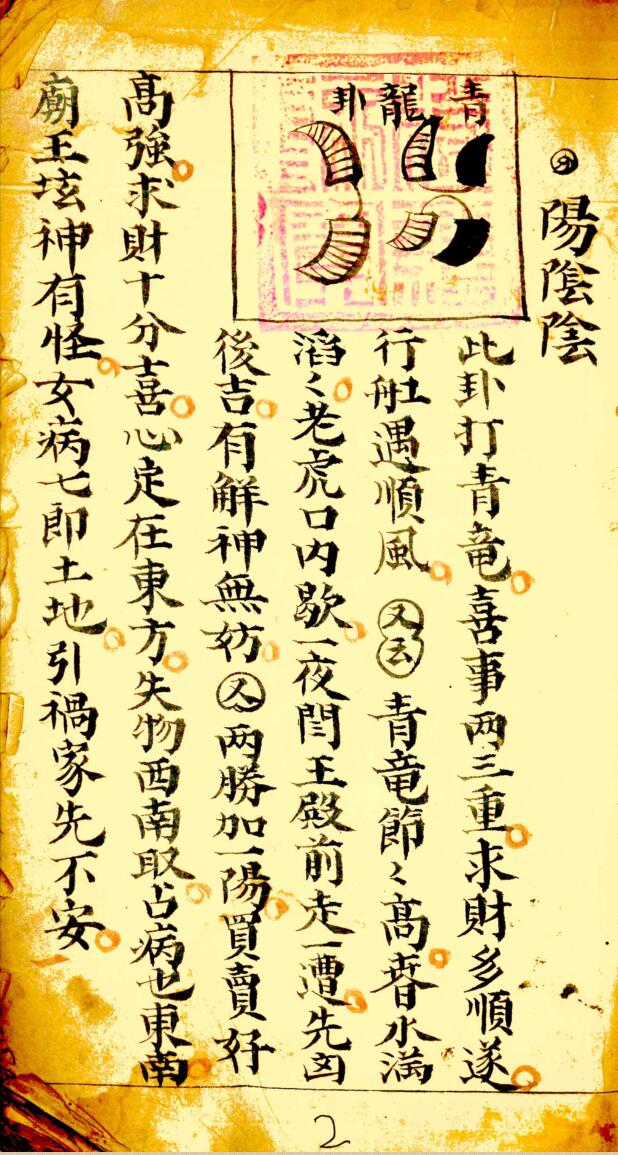 陽陰陰
青龍卦
此卦打青竜喜事两三重求財多順遂
行舡遇順風 又云 青竜節〻高春水満
滔〻老虎口内歇一夜閆王殿前走一遭先凶
後吉有解神無妨 又 两勝加一陽買賣好
高強求財十分喜心定在東方失物西南取占病也東南
廟王坛神有怪女病七即土地引禍家先不安
2